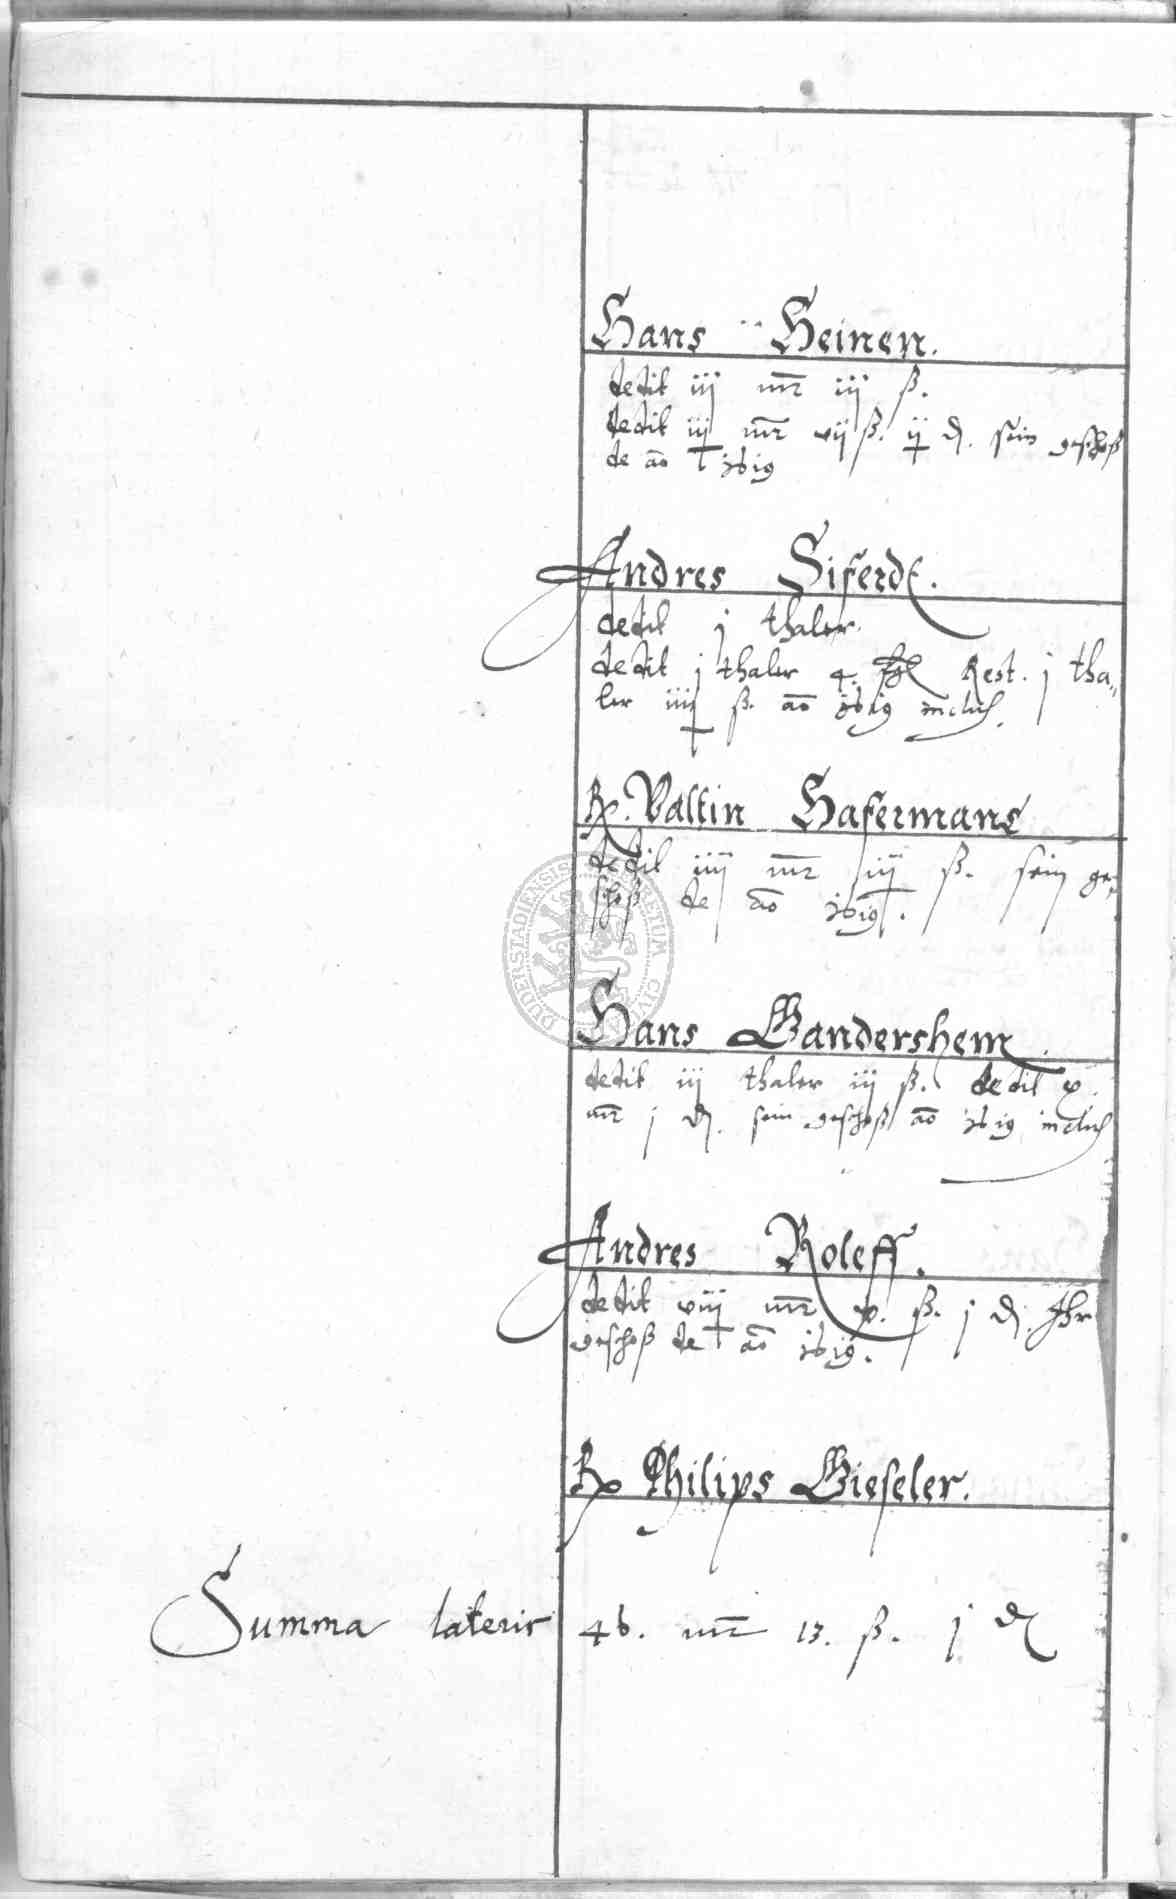 Hans Heinen.
dedit iij mr iij ß.
dedit iij mr vij ß. ij d. sein geschoß
de ao 1619
Andres Siferdt.
dedit j thaler.
dedit j thaler 4. Rest. j tha„
ler iiij ß. ao 1619 inclus.
Rx. Valtin Hafermans
dedit iiij mr iij ß. sein ge„
schoß de ao 1619.
DUDERSTADIENSIS SECRETUM CIVITA
Hans Gandershem.
dedit iij thaler iij ß. dedit x.
mr j d. sein geschoß ao 1619 inclus
Andres Roleff.
dedit viij mr x. ß. j d. Ihr
geschoß de ao 1619.
Rx Philips Gieseler.
Summa lateris 46. mr 13. ß. j d